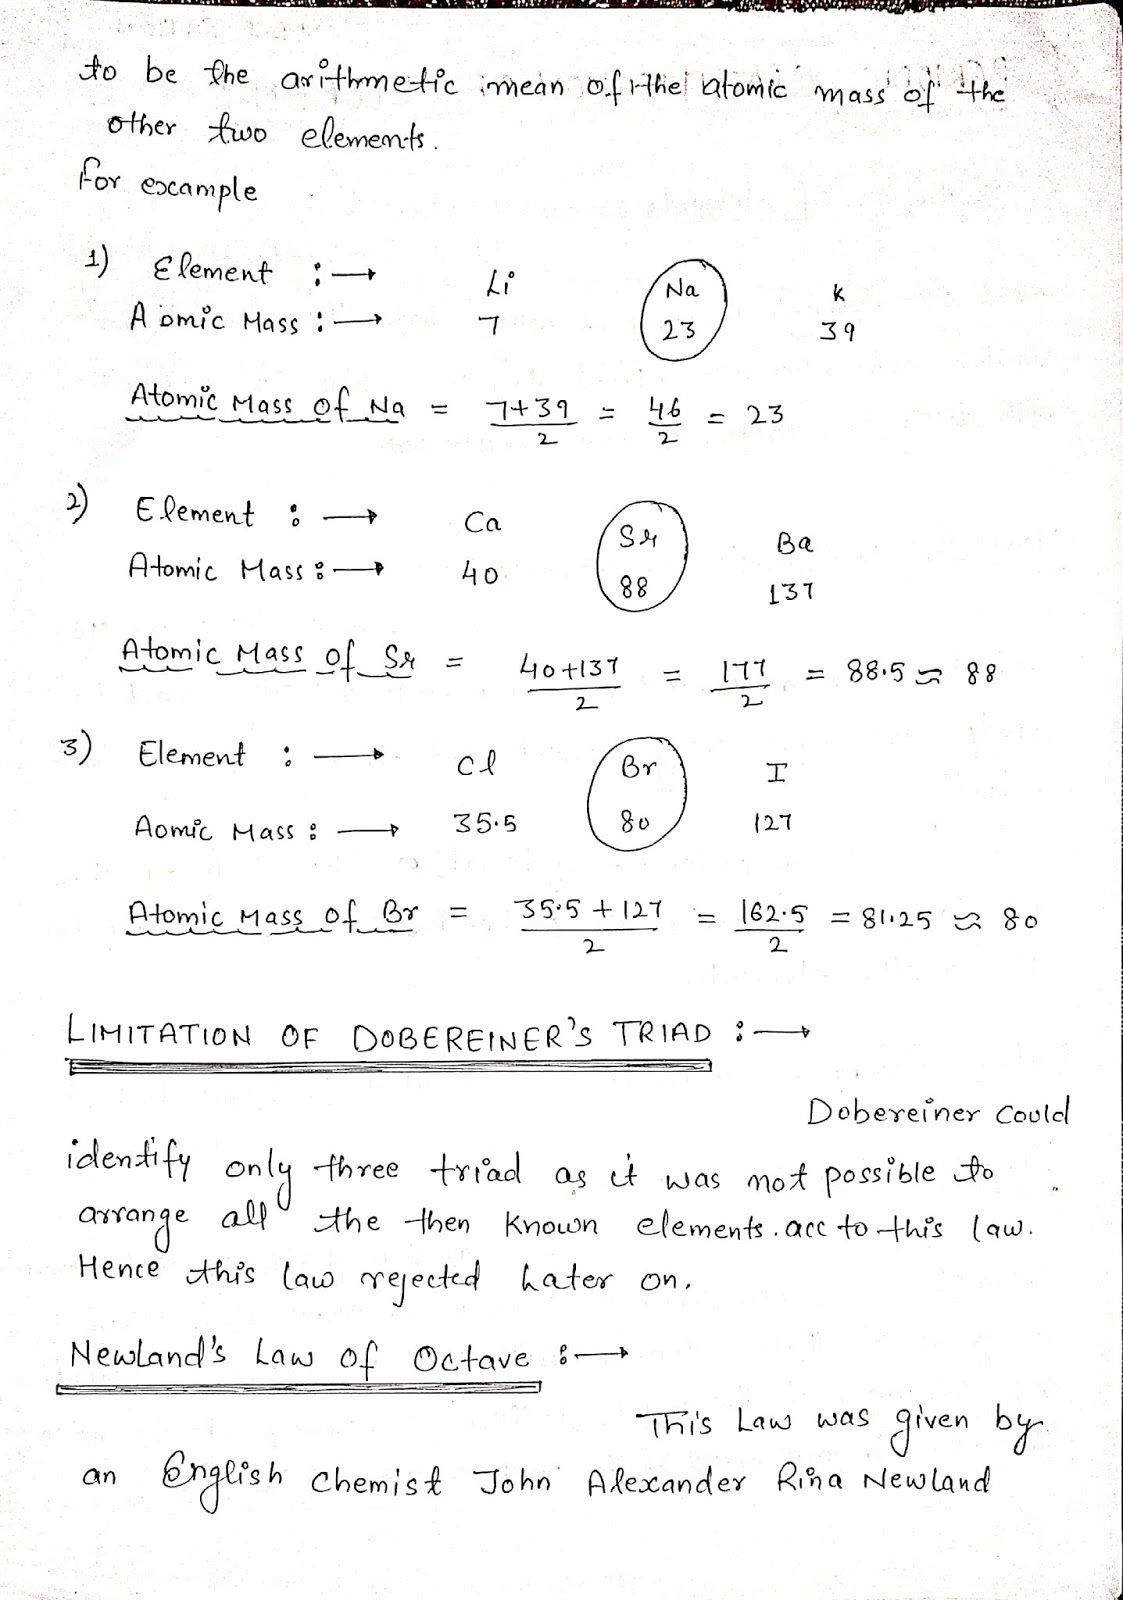 to be the arithmetic mean of the atomic mass of the
other two elements.
for example
1) Element :→ Li Na K
Aomic Mass :→ 7 23 39
Atomic Mass of Na = 7+39/2 = 46/2 = 23
2) Element :→ Ca Sr Ba
Atomic Mass :→ 40 88 137
Atomic Mass of Sr = 40+137/2 = 177/2 = 88.5 ≈ 88
3) Element :→ Cl Br I
Aomic Mass :→ 35.5 80 127
Atomic Mass of Br = 35.5+127/2 = 162.5/2 = 81.25 ≈ 80
LIMITATION OF DOBEREINER'S TRIAD :→
Dobereiner Could
identify only three triad as it was not possible to
arrange all the then known elements. acc to this law.
Hence this law rejected Later on.
Newland's Law of Octave :→
This Law was given by
an English Chemist John Alexander Rina Newland